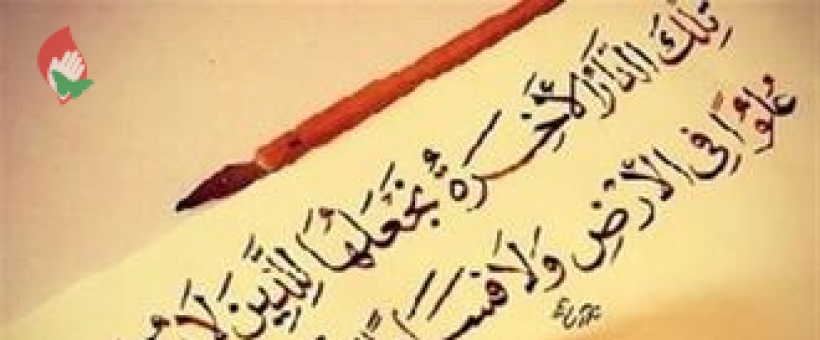 تِلْكَ الدَّارُ الْأَخِرَةُ نَجْعَلُهَا لِلَّذِينَ لَا
عُلُوًّا فِي الْأَرْضِ وَلَا فَسَا